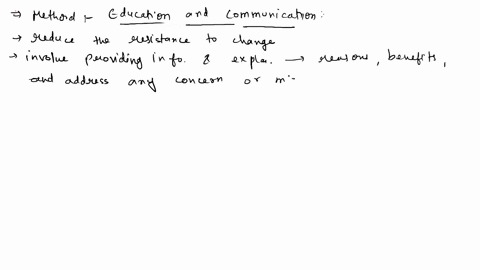 ⇒ Method :- Education and Communication:
→ reduce the resistance to change
→ involve providing info. & expla. → reasons, benefits,
and address any concern or mi